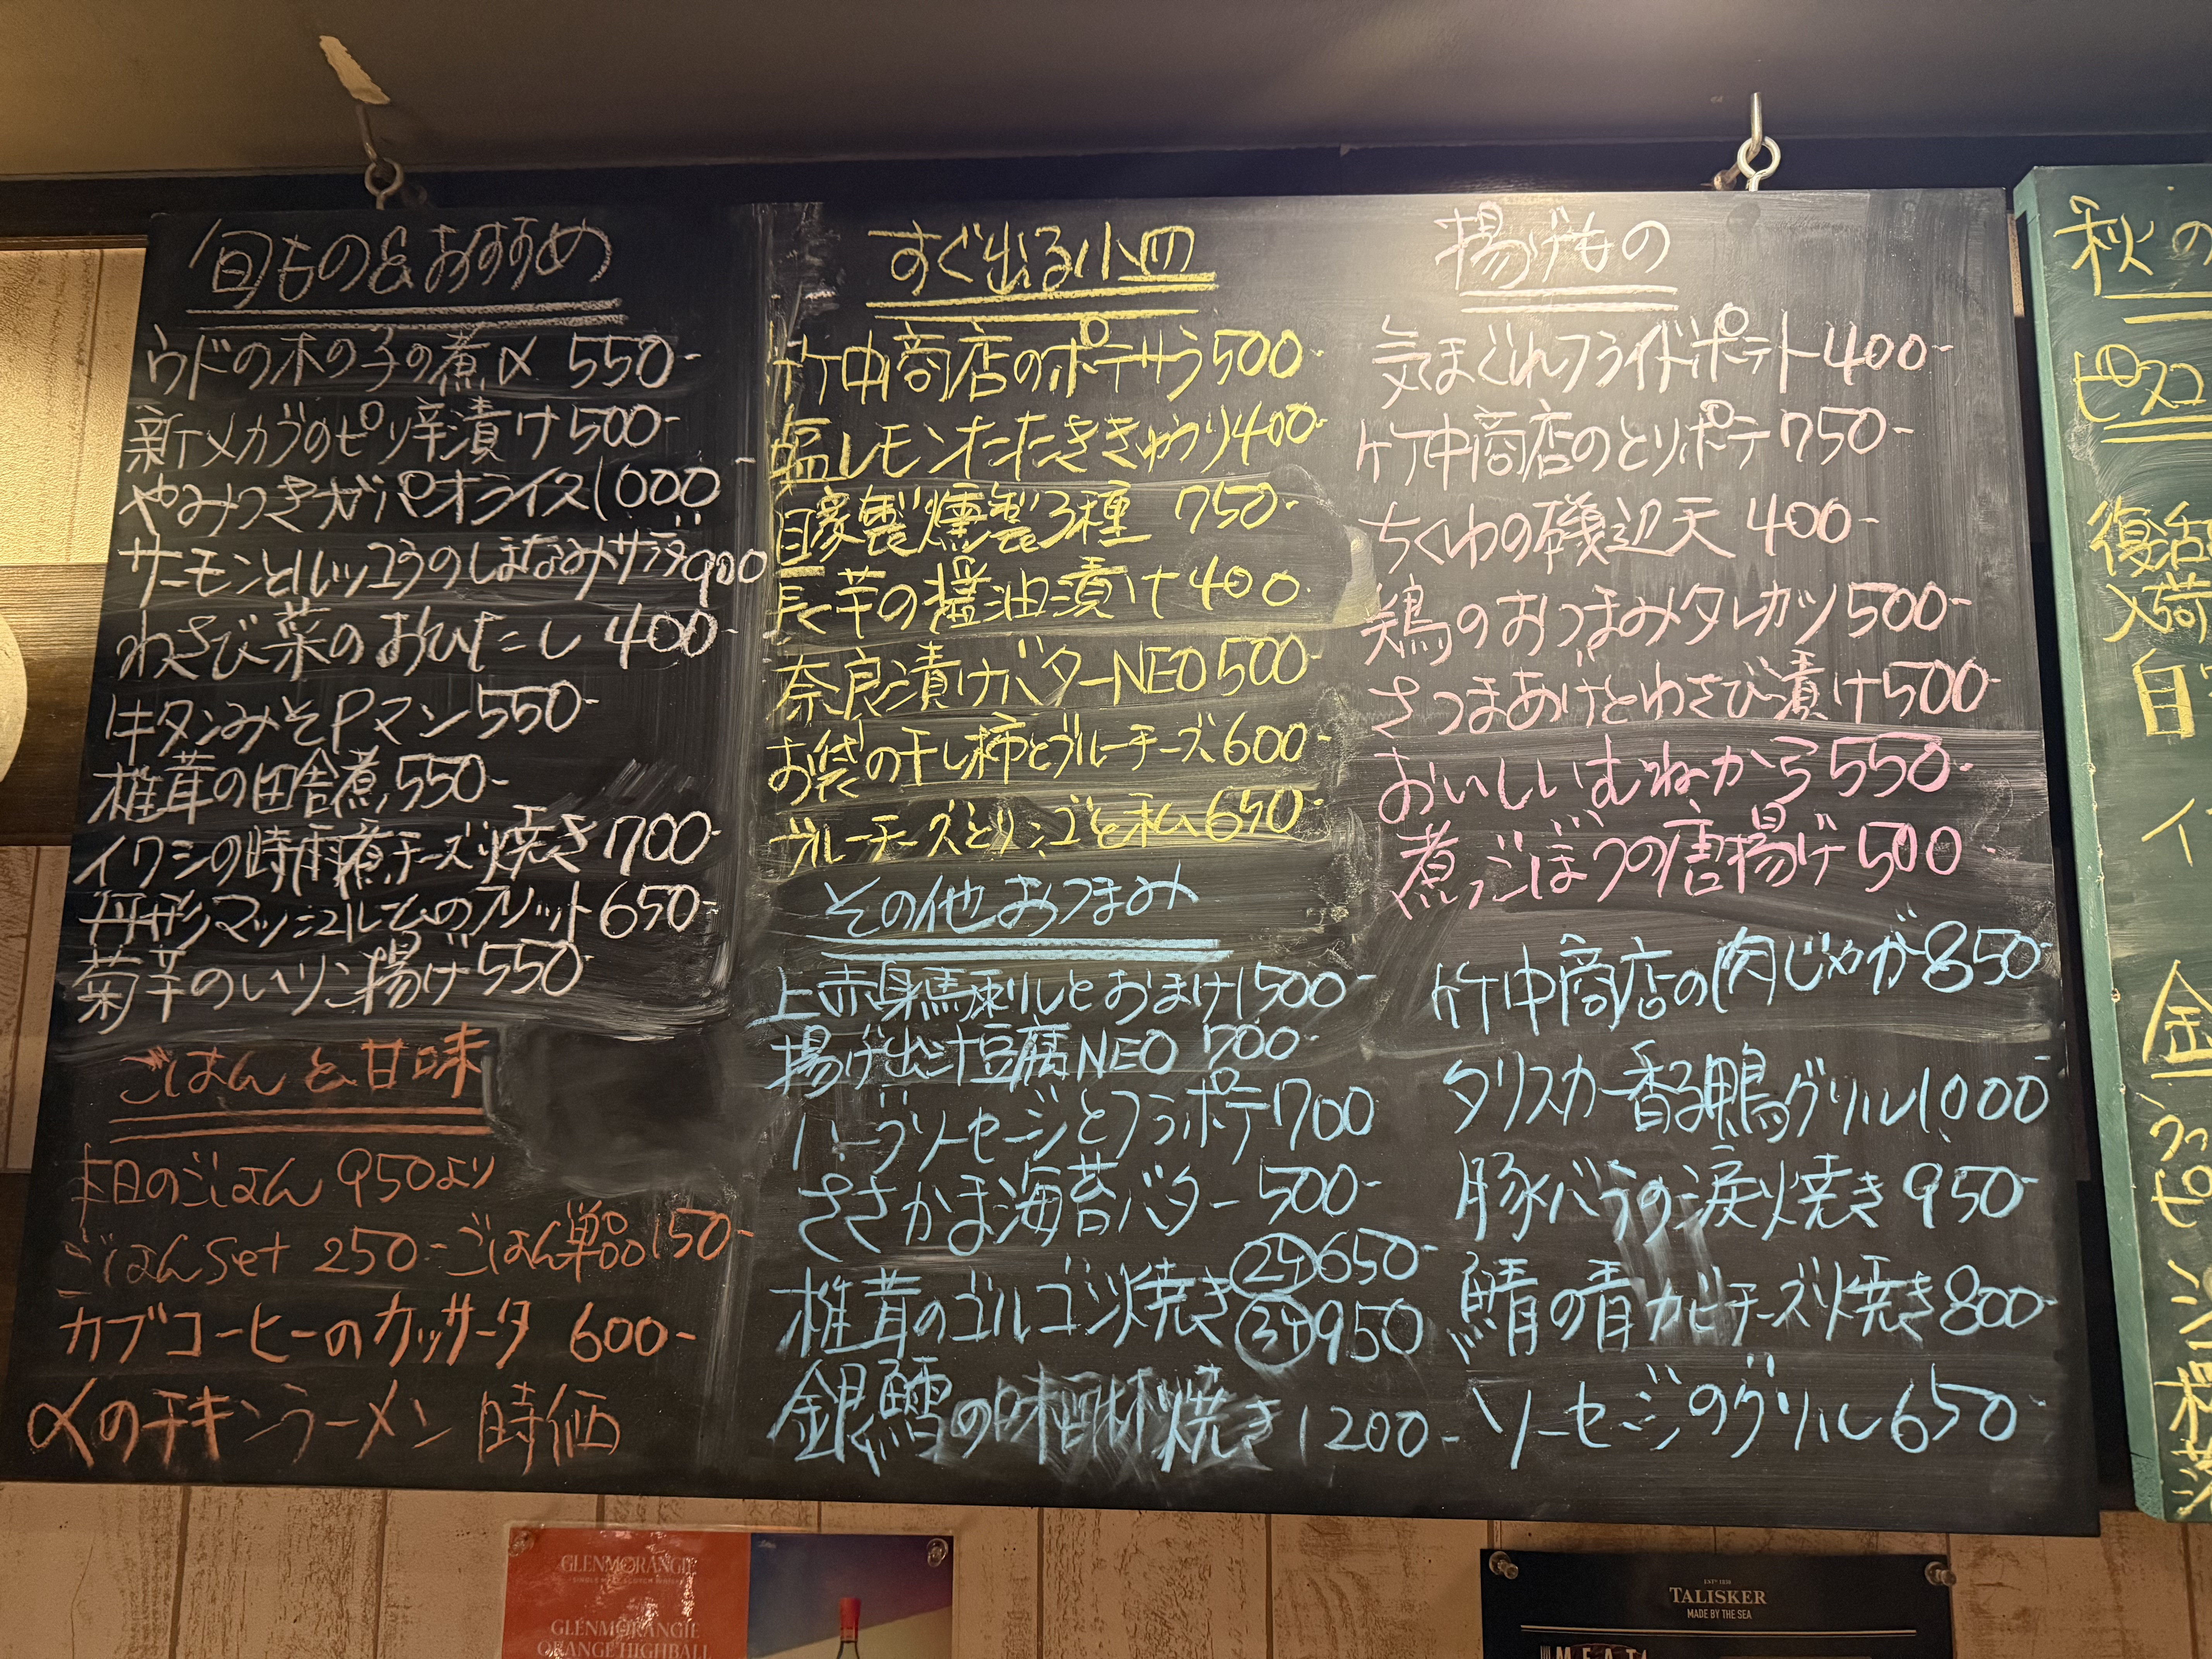 旬もの&おすすめ
ウドの木の子の煮〆 550-
新メカブのピリ辛漬け 500-
やみつきガパオライス 1000-
サーモンとルッコラのしまなみサラダ 900
わさび菜のおひたし 400-
トキタンみそPマン 550-
椎茸の田舎煮 550-
イワシの時雨煮チーズ焼き 700-
丹形マッシュルームのフリット 650-
菊芋のいりこ揚げ 550-
ごはんと甘味
本日のごはん 950より
ごはんset 250- ごはん単品 150-
カブコーヒーのカッサータ 600-
〆のチキンラーメン 時価
すぐ出る小皿
竹中商店のポテサラ 500-
塩レモンたたききゅうり 400-
自家製燻製3種 750-
長芋の醤油漬け 400
奈良漬けバターNEO 500-
お袋の干し柿とブルーチーズ 600-
ブルーチーズとリンゴと私 650-
その他おつまみ
上赤身馬刺しとおまけ 1500-
揚げ出汁豆腐NEO 700-
ハーブソーセージとフラポテ 700
ささかま海苔バター 500-
椎茸のゴルゴン焼き ②ケ 650-
③ケ 950
銀鱈の味醂焼き 1200-
揚げもの
気まぐれフライドポテト 400-
竹中商店のとりポテ 750-
ちくわの磯辺天 400-
鶏のおつまみタレカツ 500-
さつまあげとわさび漬け 500-
おいしいむねから 550-
煮ごぼうの唐揚げ 500-
竹中商店の肉じゃが 850-
タリスカー香る鴨グリル 1000-
豚バラの涙焼き 950-
鯖の青カビチーズ焼き 800-
ソーセージのグリル 650-
秋の
ピスコ
復活
入荷
自
イ
金
GLENMORANGIE
GLENMORANGIE
ORANGE HIGHBALL
TALISKER
MADE BY THE SEA
MEAT